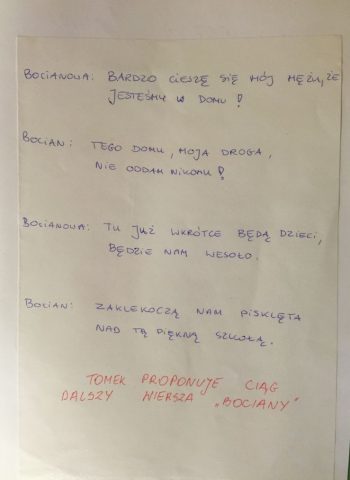 BOCIANOWA: BARDZO CIESZĘ SIĘ MÓJ MĘŻU, ŻE
JESTEŚMY W DOMU!
BOCIAN: TEGO DOMU, MOJA DROGA,
NIE ODDAM NIKOMU!
BOCIANOWA: TU JUŻ WKRÓTCE BĘDĄ DZIECI,
BĘDZIE NAM WESOŁO.
BOCIAN: ZAKLEKOCZĄ NAM PISKLĘTA
NAD TĄ PIĘKNĄ SZKOŁĄ.
TOMEK PROPONUJE CIĄG
DALSZY WIERSZA „BOCIANY"